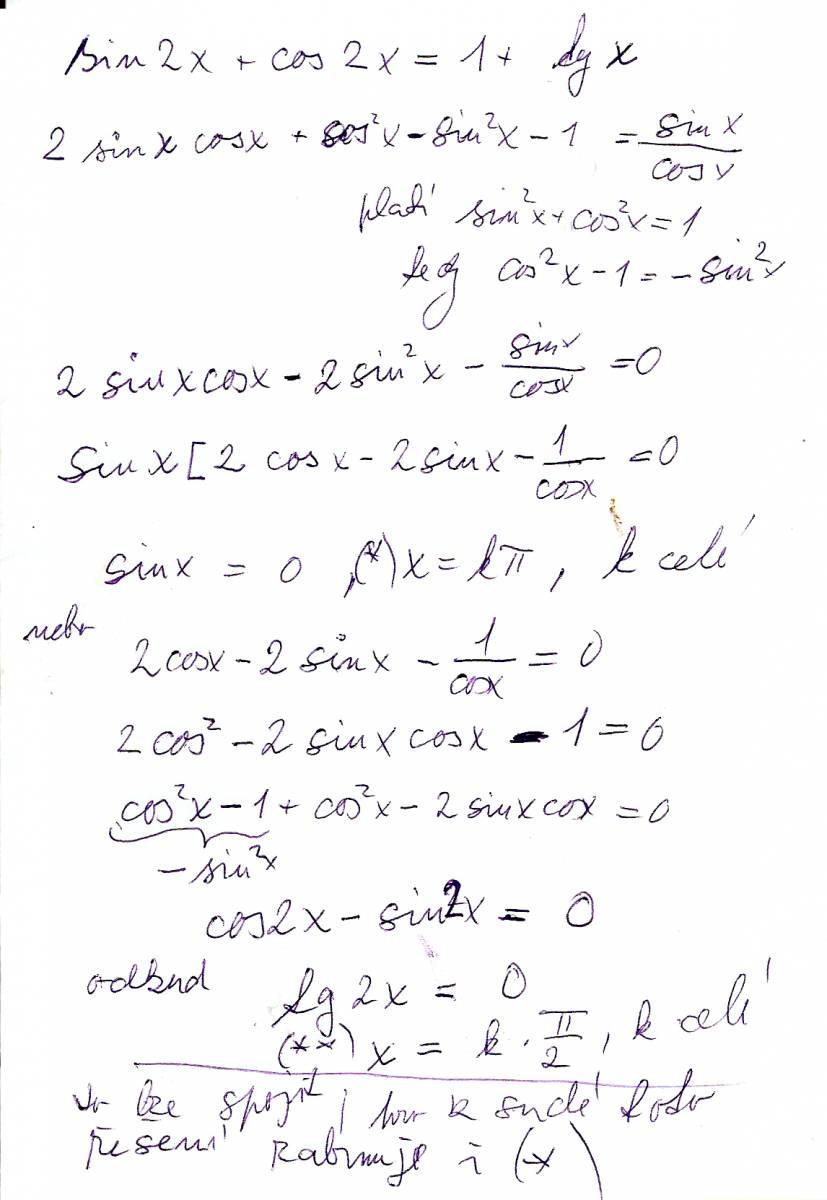 sin 2x + cos 2x = 1 + tg x
2 sin x cos x + cos²x - sin²x - 1 = sin x / cos x
platí sin²x + cos²x = 1
tedy cos²x - 1 = - sin²x
2 sin x cos x - 2 sin²x - sin x / cos x = 0
sin x [ 2 cos x - 2 sin x - 1 / cos x = 0
sin x = 0 , (*) x = kπ , k celé
nebo
2 cos x - 2 sin x - 1 / cos x = 0
2 cos² - 2 sin x cos x - 1 = 0
cos²x - 1 + cos²x - 2 sin x cox = 0
- sin²x
cos 2x - sin 2x = 0
odkud tg 2x = 0
(**) x = k · π / 2 , k celé
to lze spojit, k sudé toto
řešení zahrnuje i (*)